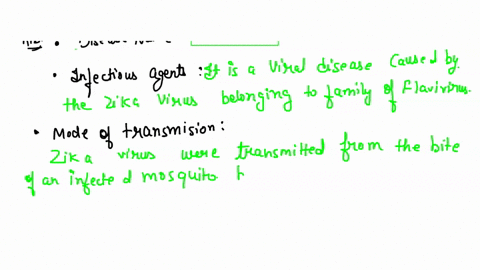 • Infectious agents : It is a viral disease caused by
the Zika virus belonging to family of Flavivirus.
• Mode of transmision:
Zika virus were transmitted from the bite
of an infected mosquito